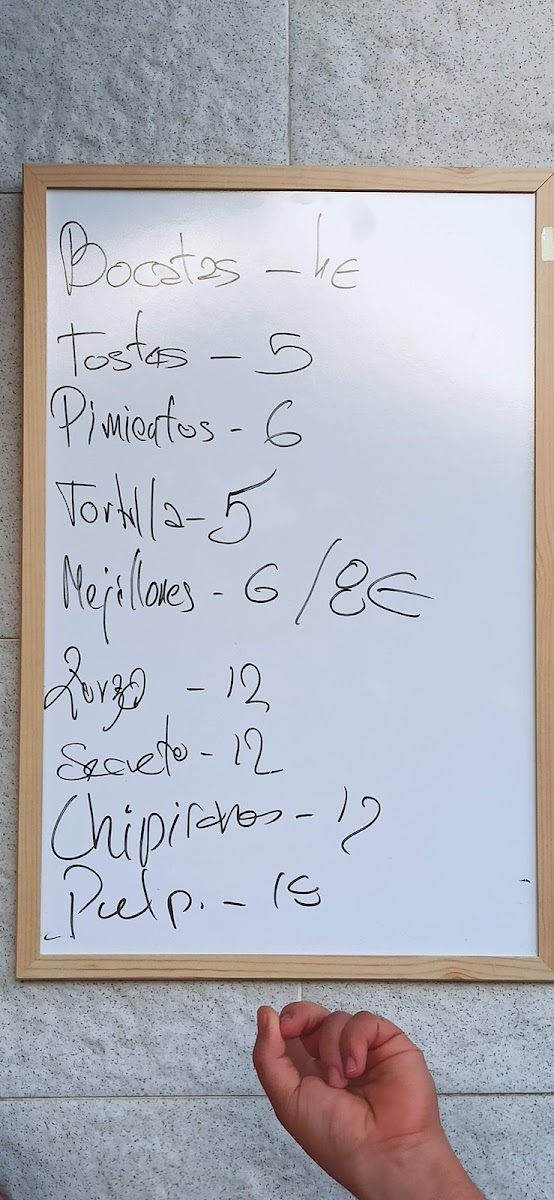 Bocatas - 4€
Tostas - 5
Pimientos - 6
Tortilla - 5
Mejillones - 6 / 8€
Zorza - 12
Secreto - 12
Chipirones - 12
Pulp. -